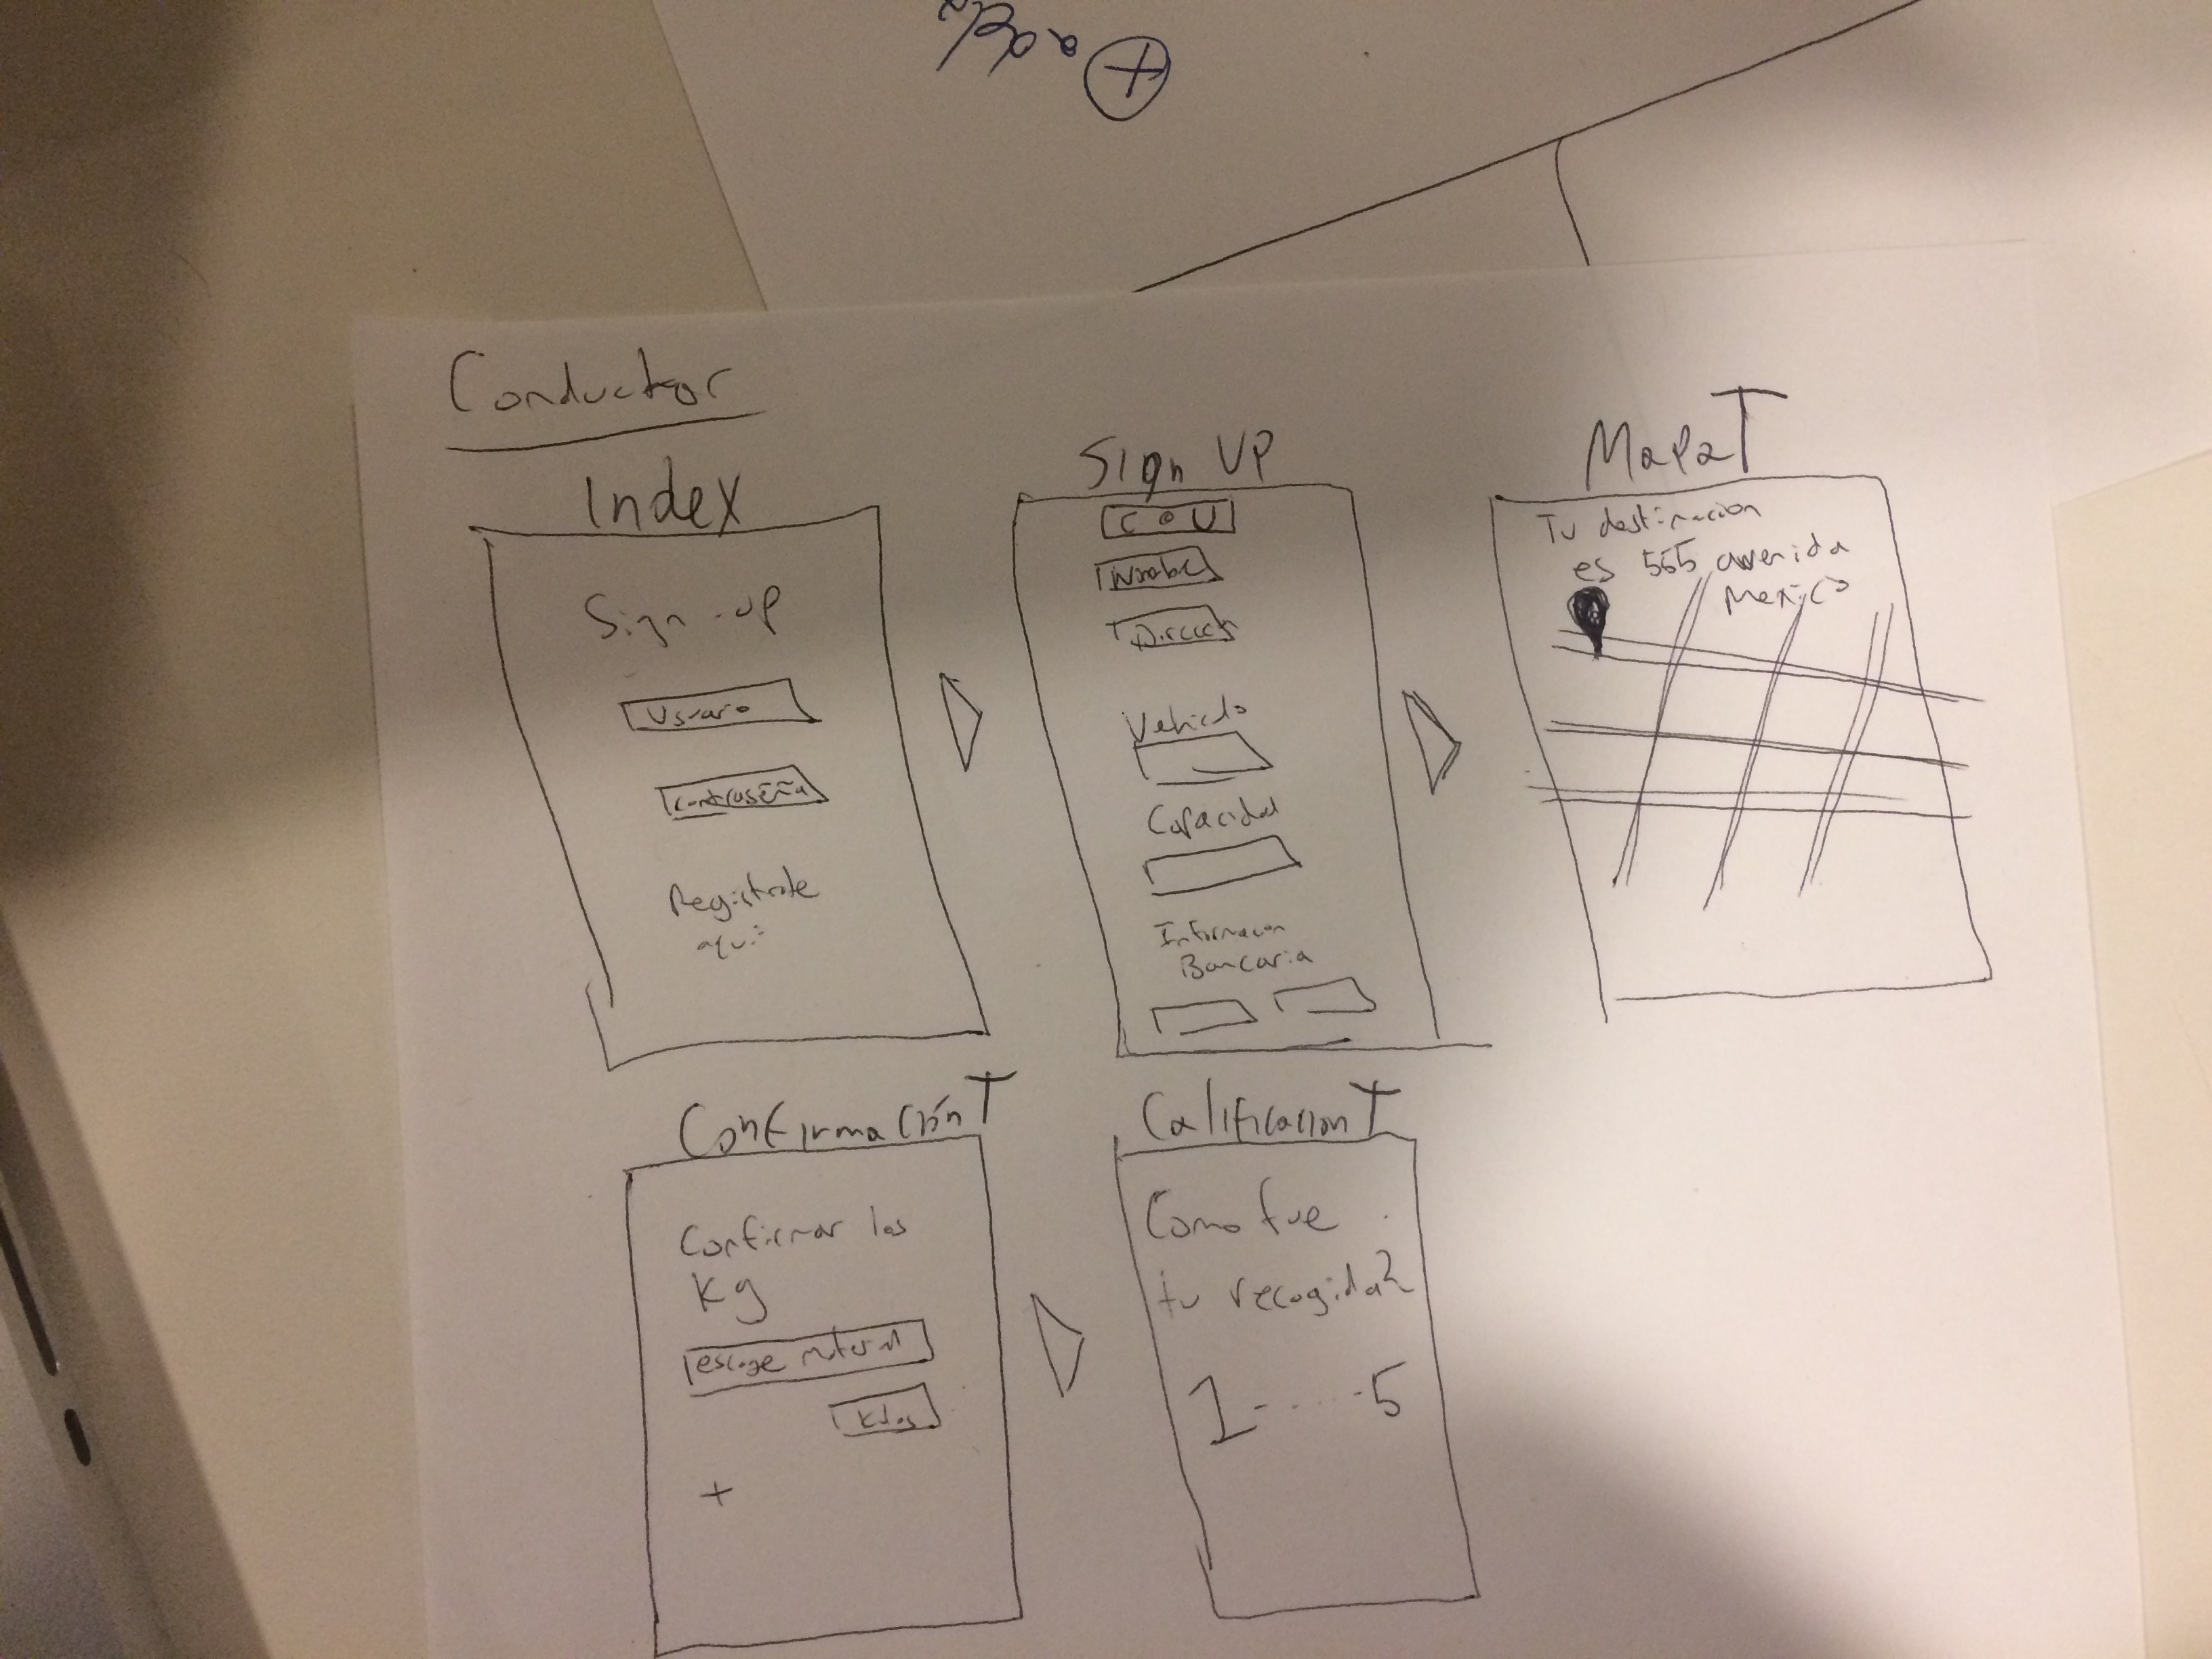 Conductor
Index
Sign-up
Usuario
Contraseña
Registrate
aquí
Sign UP
C o U
Nombre
Direcc
Vehiculo
Capacidad
Informacion
Bancaria
MapaT
Tu destinacion
es 555 avenida
Mexico
ConfirmaciónT
Confirmar los
Kg
escoge material
Kilos
+
CalificacionT
Como fue
tu recogida?
1-....-5